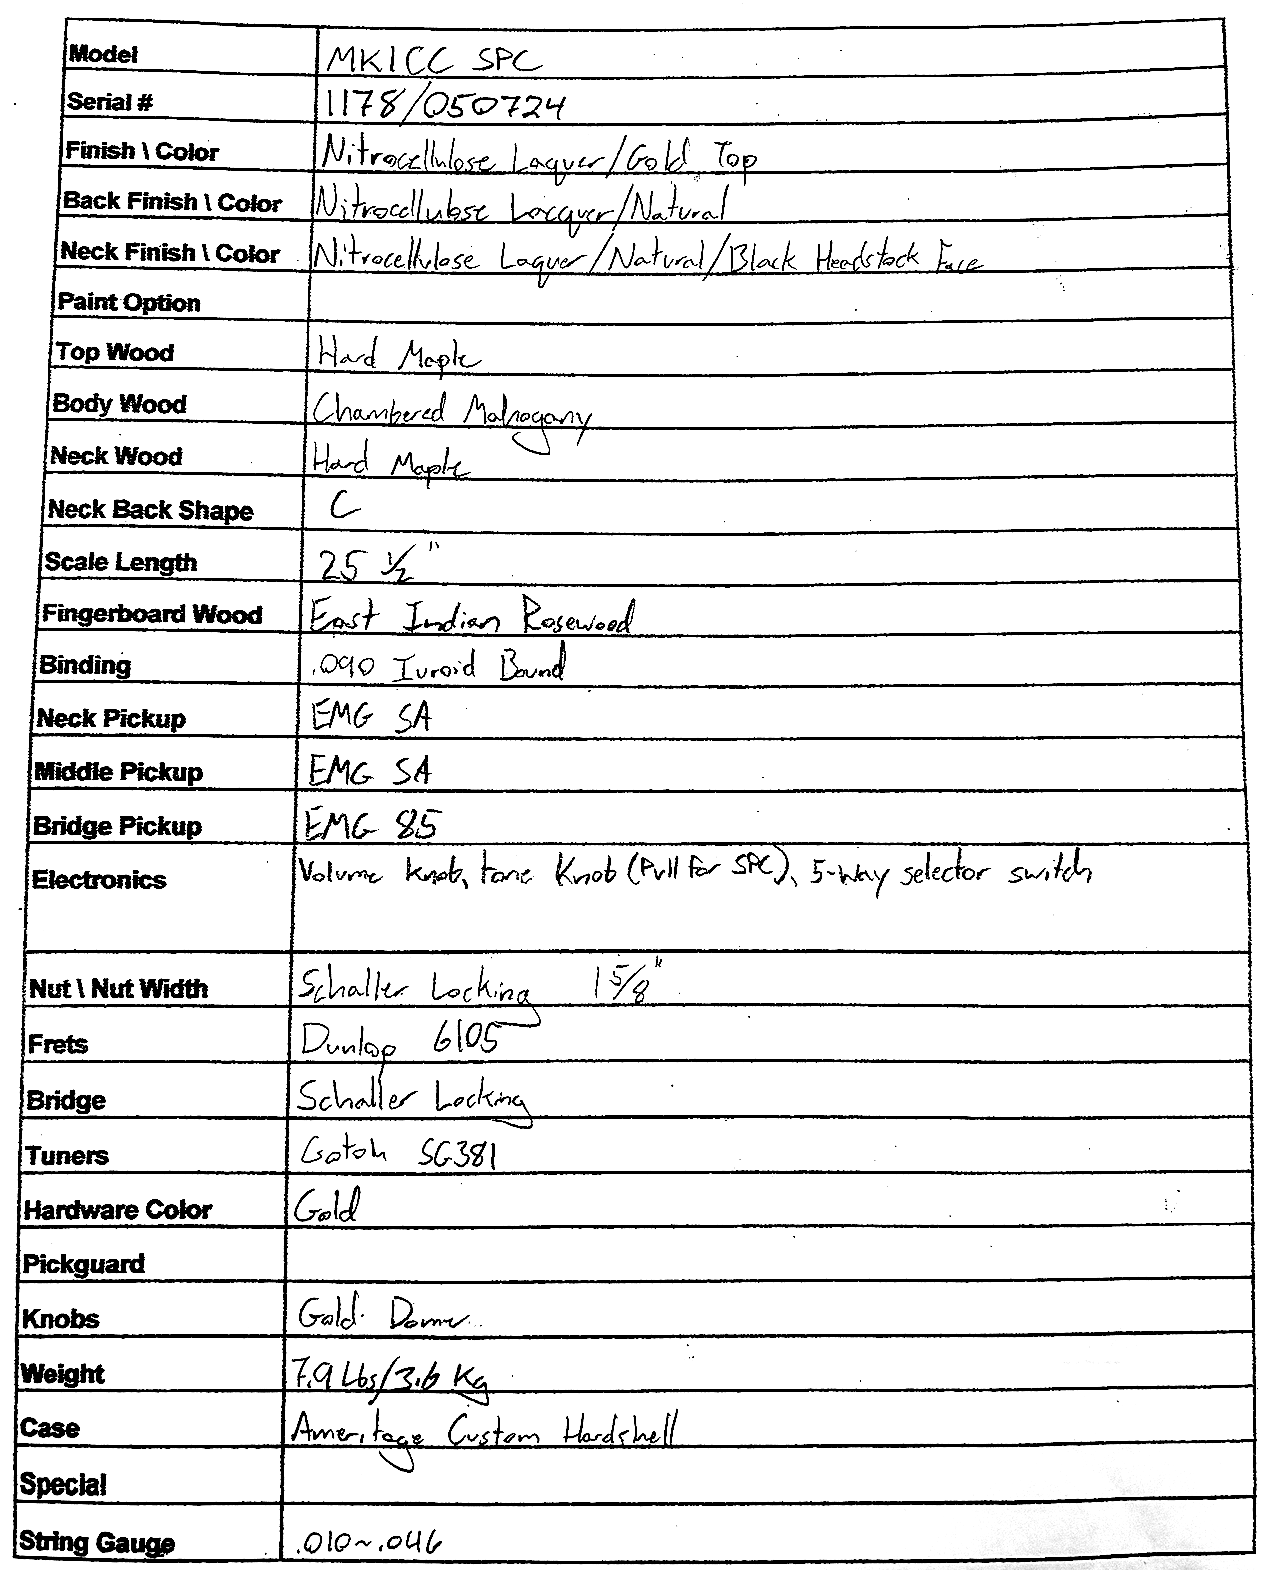 Model MK1CC SPC
Serial # 1178/050724
Finish \ Color Nitrocellulose Laquer/Gold Top
Back Finish \ Color Nitrocellulose Lacquer/Natural
Neck Finish \ Color Nitrocellulose Laquer/Natural/Black Headstock Face
Paint Option
Top Wood Hard Maple
Body Wood Chambered Mahogany
Neck Wood Hard Maple
Neck Back Shape C
Scale Length 25 1/2"
Fingerboard Wood East Indian Rosewood
Binding .090 Ivroid Bound
Neck Pickup EMG SA
Middle Pickup EMG SA
Bridge Pickup EMG 85
Electronics Volume knob, tone Knob (Pull For SPC), 5-Way selector switch
Nut \ Nut Width Schaller Locking 1 5/8"
Frets Dunlop 6105
Bridge Schaller Locking
Tuners Gotoh SG381
Hardware Color Gold
Pickguard
Knobs Gold
Weight 7.9 Lbs/3.6 Kg
Case Ameritage Custom Hardshell
Special
String Gauge .010~.046